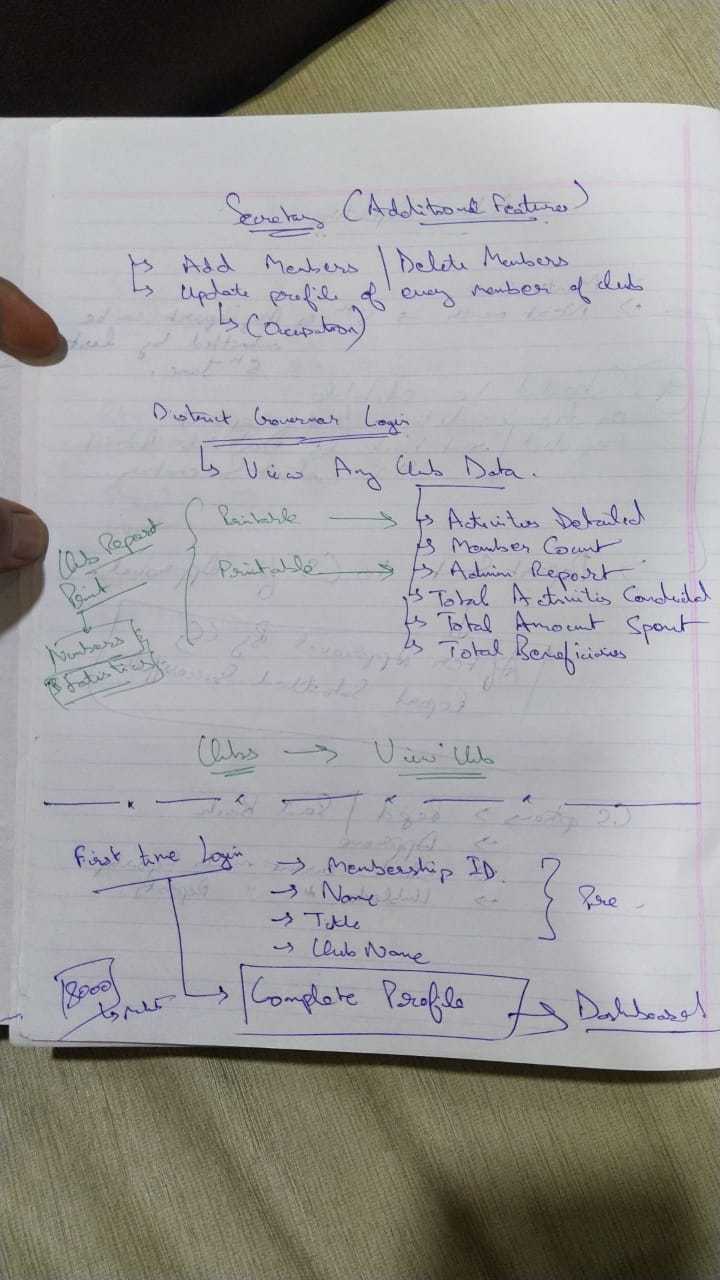 Secretary (Additional Features)
↳ Add Members / Delete Members
↳ Update profile of every member of club
↳ (Occupation)
District Governor Login
↳ View Any Club Data.
Printable → ↳ Activities Detailed
↳ Member Count
Printable → ↳ Admin Report
↳ Total Activities Conducted
↳ Total Amount Spent
↳ Total Beneficiaries
Club Report
Print
Numbers
Statistics
Clubs → View Club
First time Login → Membership ID.
→ Name
→ Title
→ Club Name
Pre -
8000
Complete Profile → Dashboard